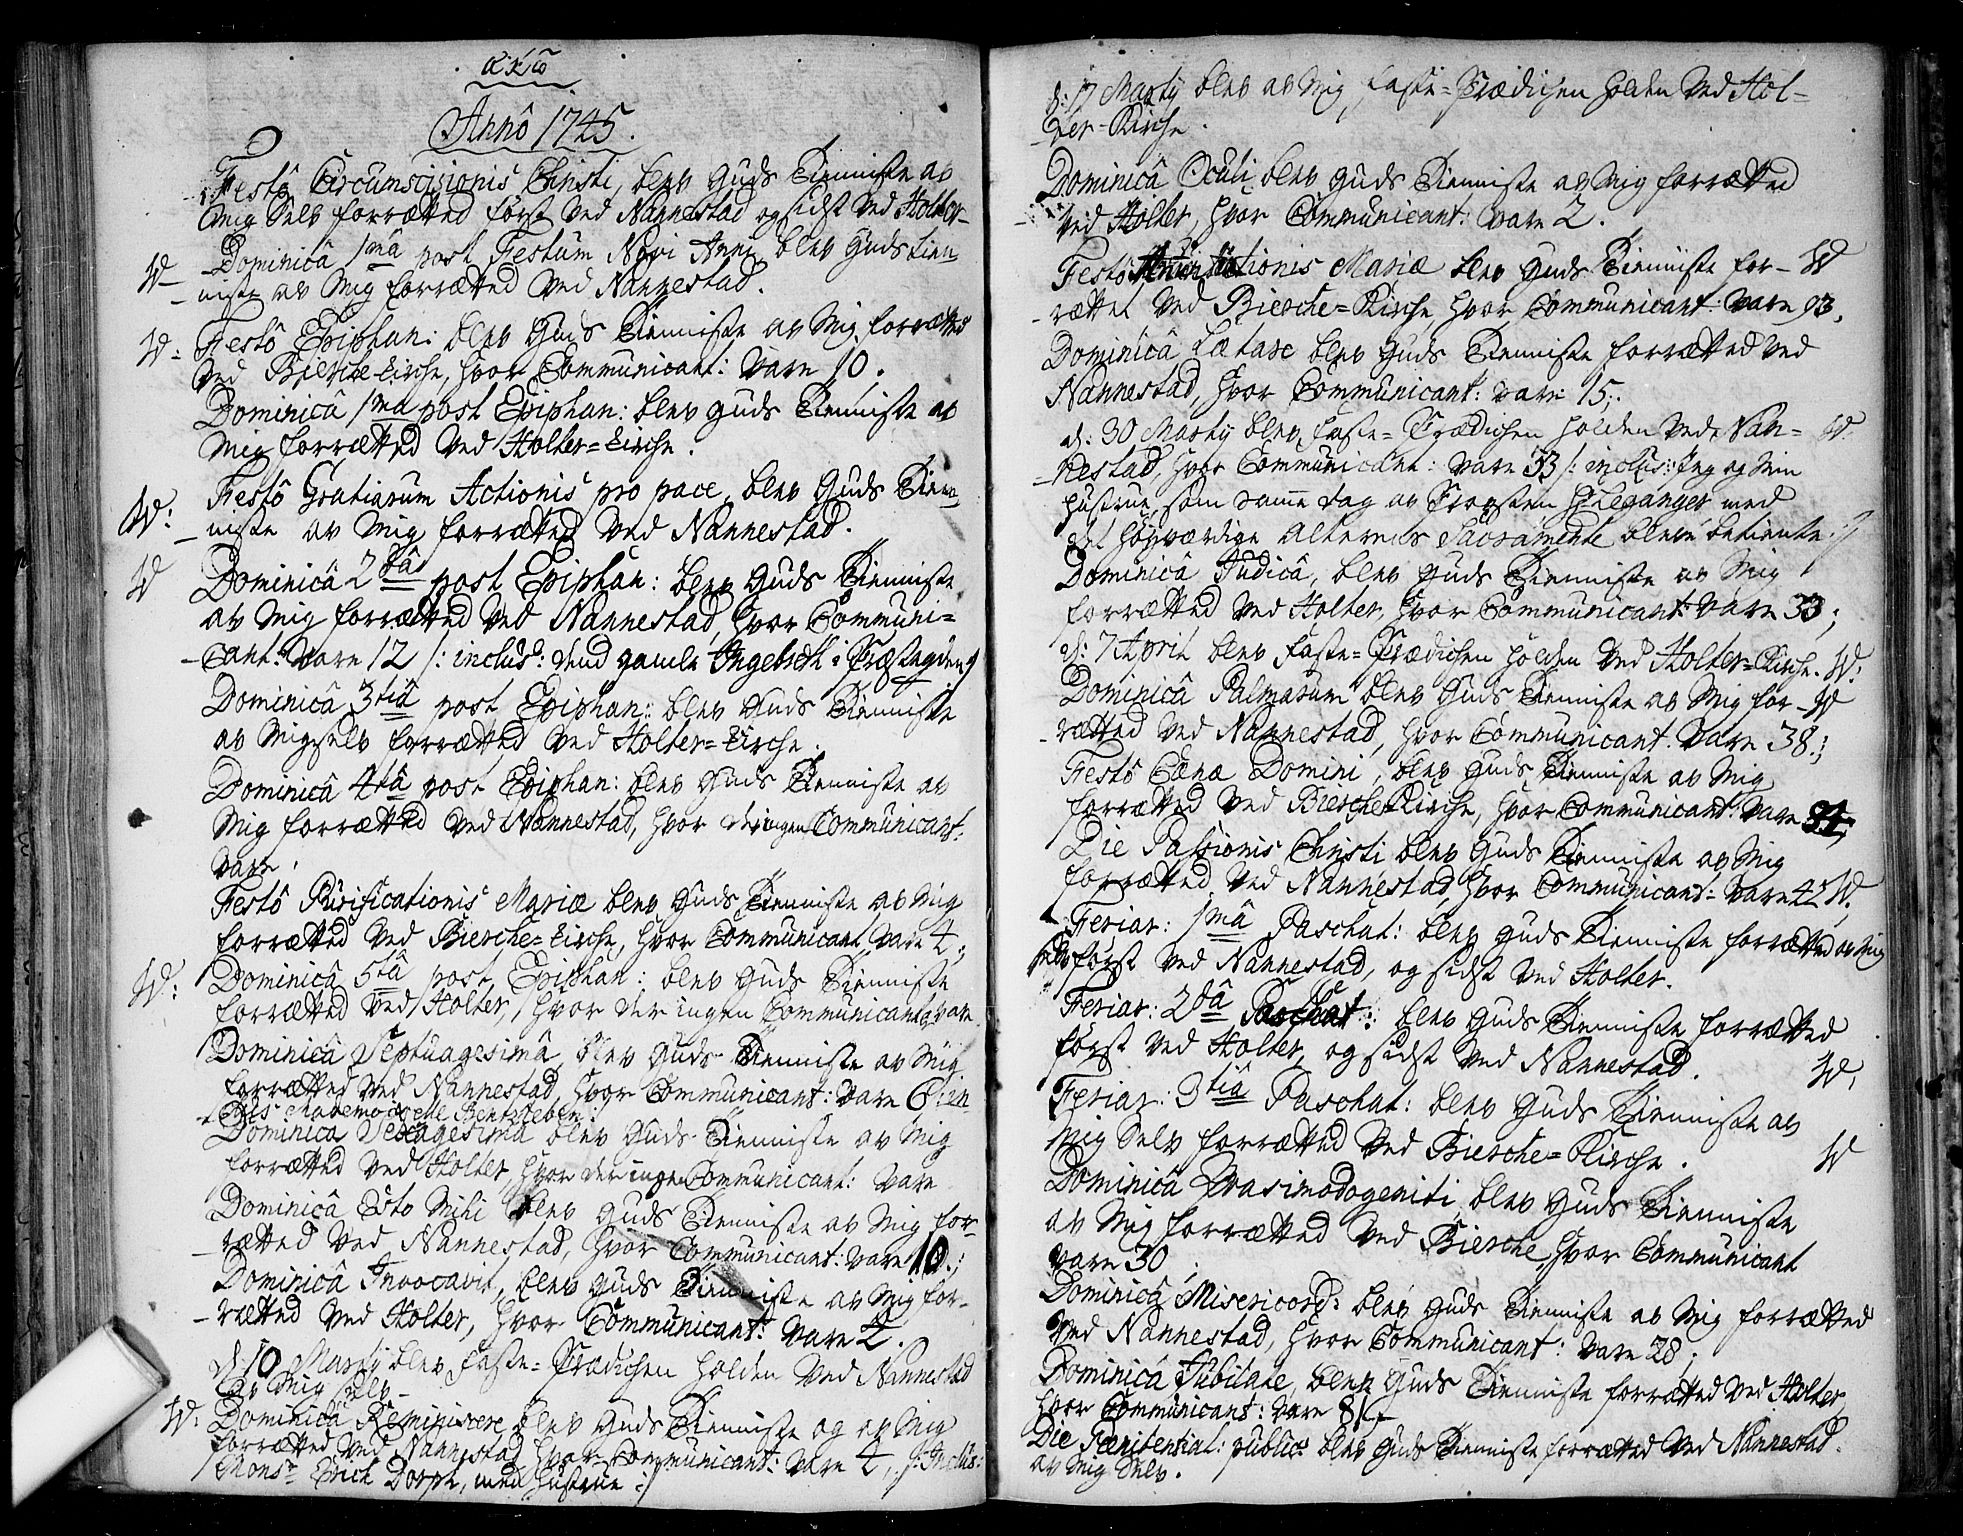 Anno 1745.
Festô Circumscisionis Christi, blev Guds Tienniste av
Mig Selv forrætted først ved Nannestad og sidst ved Holter-
W- Dominicâ 1mâ post Festum Novi Anni blev Guds Tien
niste av Mig forrætted ved Nannestad.
W: Festô Epiphan: blev Guds Tienniste av Mig forrætted
ved Biercke-kirche, hvor Communicant: vare 10.
Dominicâ 1mâ post Epiphan: blev Guds Tienniste av
Mig forrætted ved Holter=kirche.
Festô Gratiarum Actionis pro pace, blev Guds Tien
W: niste av Mig forrætted ved Nannestad.
W Dominicâ 2dâ post Epiphan: blev Guds Tienniste
av Mig forrætted ved Nannestad, hvor Communi=
cant: vare 12 /: inclus: dend gamle Ingebreth i Præstegden /
Dominicâ 3tiâ post Epiphan: blev Guds Tienniste
av Migselv forrætted ved Holter=kirche.
Dominicâ 4tâ post Epiphan: blev Guds Tienniste av
Mig forrætted ved Nannestad, hvor der ingen Communicant:
vare.
Festô Purificationis Mariæ blev Guds Tienniste av Mig
forrætted ved Biersche=kirche, hvor Communicant vare 4.
W: Dominicâ 5tâ post Epiphan: blev Guds Tienniste
forrætted ved Holter, hvor der ingen Communicant: vare
Dominicâ Septuagesimâ blev Guds Tienniste av Mig
forrætted ved Nannestad, hvor Communicant: vare 6
Mademoiselle
Dominica Sexagesima blev Guds Tienniste av Mig
forrætted ved Holter, hvor der ingen Communicant: vare
Dominicâ Esto Mihi blev Guds Tienniste av Mig for-
rætted ved Nannestad, hvor Communicant: vare 10.;
Dominicâ Invocavit, blev Guds Tienniste av Mig for-
rætted ved Holter, hvor Communicant: vare 4.
d: 10 Martij blev Faste=Prædichen holden ved Nannestad
av Mig selv-
W: Dominicâ Reminiscere blev Guds Tienniste og av Mig
forrætted ved Nannestad, hvor Communicant: vare 4, /: Inclus:
Monsr Erich Dorph, med Hustrue :/
d: 17 Martij blev av Mig Faste=Prædichen holden ved Hol=
ter=Kirche.
Dominicâ Oculi blev Guds Tienniste av Mig forrætted
ved Holter, hvor Communicant: vare 2.
Festô Annuntiationis Mariæ blev Guds Tienniste for- W
rættet ved Biersche=Kirche hvor Communicant: vare 93,
Dominicâ Lætare blev Guds Tienniste forrætted ved
Nannestad, hvor Communicant: vare 15;.
d: 30 Martij blev Faste=Prædichen holden ved Nan= W
nestad, hvor Communicant: vare 33 /: inclus: Jeg og Min
Hustrue, som samme dag av Provsten Hr: Leganger med
det høyværdige Alterens Sacramente bleve betiente :/
Dominicâ Judicâ, blev Guds Tienniste av Mig
forrætted ved Holter, hvor Communicant: vare 33;
d: 7 April blev Faste=Prædichen holden ved Holter=Kirche. W:
Dominicâ Palmarum blev Guds Tienniste av Mig for- W
rætted ved Nannestad, hvor Communicant: vare 38.;
Festô Cœnæ Domini, blev Guds Tienniste av Mig
forrætted ved Biersche Kirche, hvor Communicant: vare 84;
Die Passionis Christi blev Guds Tienniste av Mig
forrætted ved Nannestad, hvor Communicant: vare 42 W.
Feriar: 1mâ Paschat: blev Guds Tienniste forrætted av Mig
selv først ved Nannestad, og sidst ved Holter.
Feriar: 2dâ Paschat: blev Guds Tienniste forrætted
først ved Holter, og sidst ved Nannestad. W.
Feriar: 3tiâ Paschat: blev Guds Tienniste av
Mig Selv forrætted ved Biersche=Kirche. W
Dominicâ Qvasimodogeniti blev Guds Tienniste
av Mig forrætted ved Biersche, hvor Communicant
vare 30.
Dominicâ Misericord: blev Guds Tienniste av Mig forrætted
ved Nannestad, hvor Communicant: vare 28;
Dominicâ Jubilate, blev Guds Tienniste forrætted ved Holter,
hvor Communicant: vare 8
Die Pœnitential: public: blev Guds Tienniste forrætted ved Nannestad.
av Mig Selv.